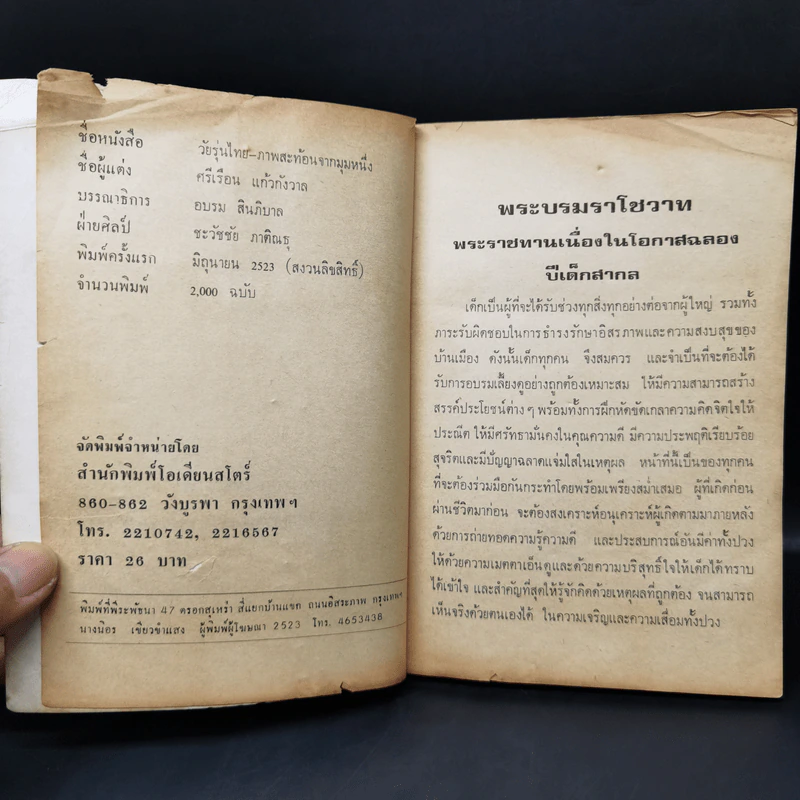 ชื่อหนังสือ วัยรุ่นไทย-ภาพสะท้อนจากมุมหนึ่ง
ชื่อผู้แต่ง ศรีเรือน แก้วกังวาล
บรรณาธิการ อบรม สินภิบาล
ฝ่ายศิลป์ ชะวัชชัย ภาติณธุ
พิมพ์ครั้งแรก มิถุนายน 2523 (สงวนลิขสิทธิ์)
จำนวนพิมพ์ 2,000 ฉบับ
จัดพิมพ์จำหน่ายโดย
สำนักพิมพ์โอเดียนสโตร์
860-862 วังบูรพา กรุงเทพฯ
โทร. 2210742, 2216567
ราคา 26 บาท
พิมพ์ที่พีระพัธนา 47 ตรอกสุเหร่า สี่แยกบ้านแขก ถนนอิสระภาพ กรุงเทพฯ
นางนิอร เขียวขำแสง ผู้พิมพ์ผู้โฆษณา 2523 โทร. 4653438
พระบรมราโชวาท
พระราชทานเนื่องในโอกาสฉลอง
ปีเด็กสากล
เด็กเป็นผู้ที่จะได้รับช่วงทุกสิ่งทุกอย่างต่อจากผู้ใหญ่ รวมทั้ง
ภาระรับผิดชอบในการธำรงรักษาอิสรภาพและความสงบสุขของ
บ้านเมือง ดังนั้นเด็กทุกคน จึงสมควร และจำเป็นที่จะต้องได้
รับการอบรมเลี้ยงดูอย่างถูกต้องเหมาะสม ให้มีความสามารถสร้าง
สรรค์ประโยชน์ต่าง ๆ พร้อมทั้งการฝึกหัดขัดเกลาความคิดจิตใจให้
ประณีต ให้มีศรัทธามั่นคงในคุณความดี มีความประพฤติเรียบร้อย
สุจริตและมีปัญญาฉลาดแจ่มใสในเหตุผล หน้าที่นี้เป็นของทุกคน
ที่จะต้องร่วมมือกันกระทำโดยพร้อมเพรียงสม่ำเสมอ ผู้ที่เกิดก่อน
ผ่านชีวิตมาก่อน จะต้องสงเคราะห์อนุเคราะห์ผู้เกิดตามมาภายหลัง
ด้วยการถ่ายทอดความรู้ความดี และประสบการณ์อันมีค่าทั้งปวง
ให้ด้วยความเมตตาเอ็นดูและด้วยความบริสุทธิ์ใจให้เด็กได้ทราบ
ได้เข้าใจ และสำคัญที่สุดให้รู้จักคิดด้วยเหตุผลที่ถูกต้อง จนสามารถ
เห็นจริงด้วยตนเองได้ ในความเจริญและความเสื่อมทั้งปวง